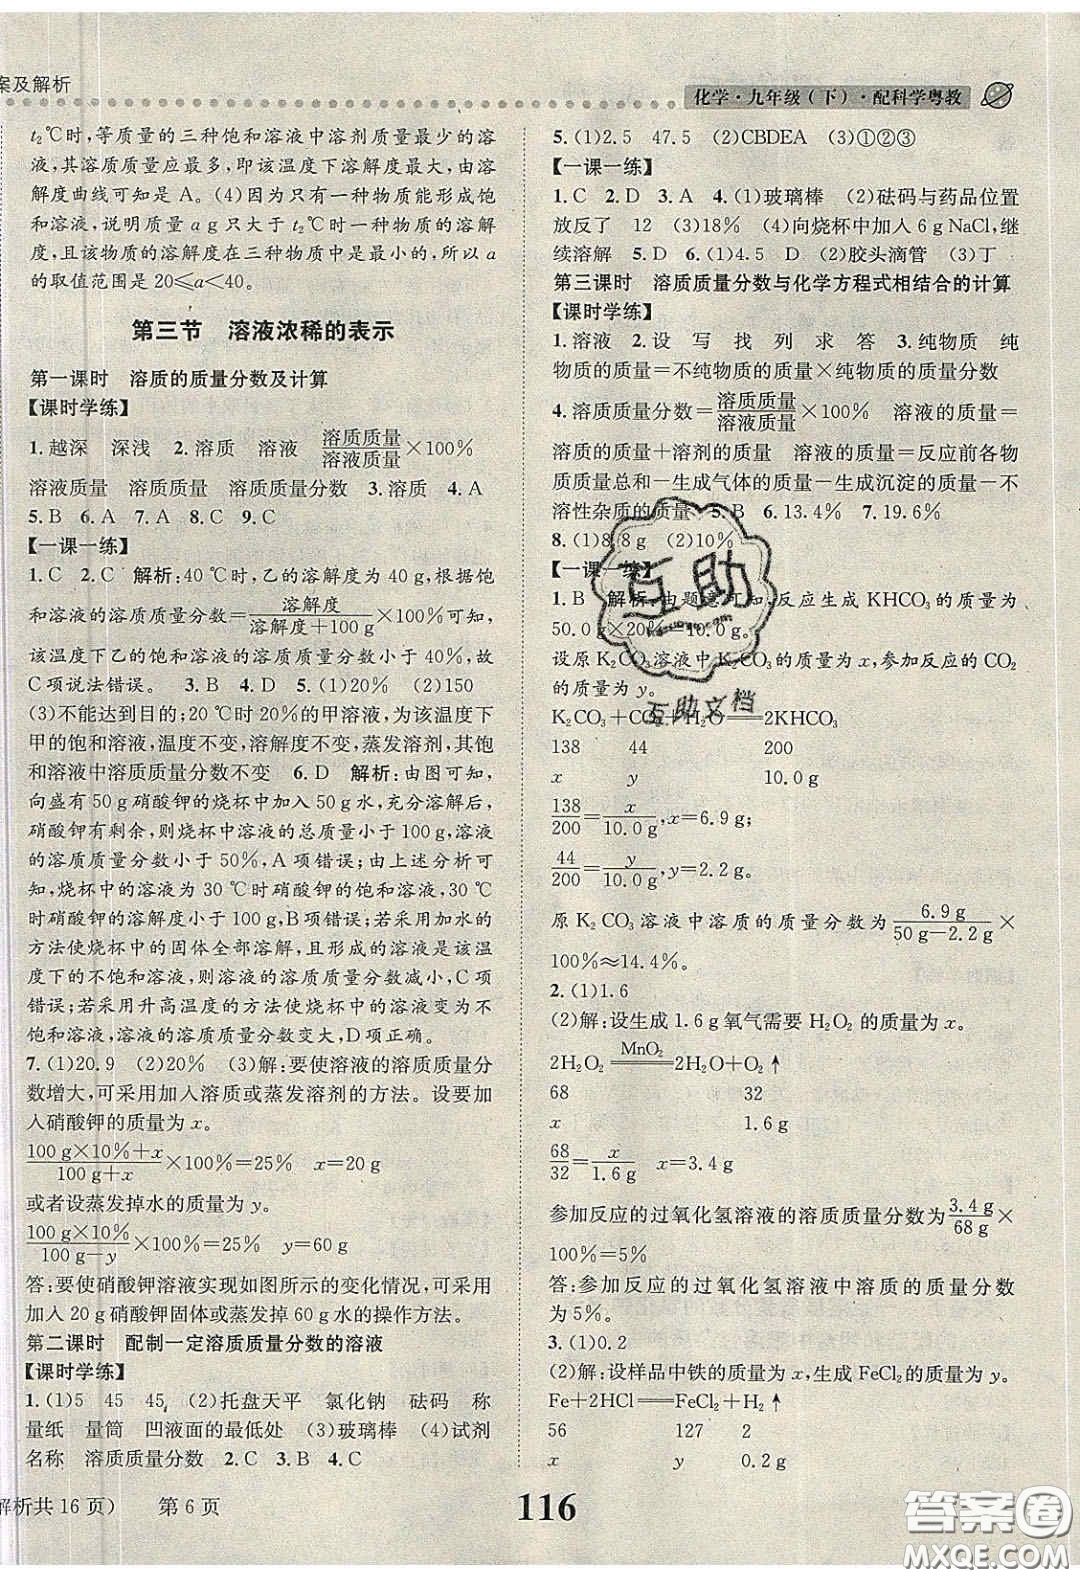 案及解析
化学·九年级(下)·配科学粤教
t₂℃时,等质量的三种饱和溶液中溶剂质量最少的溶
液,其溶质质量应最多,即该温度下溶解度最大,由溶
解度曲线可知是A。(4)因为只有一种物质能形成饱
和溶液,说明物质a g只大于t₂℃时一种物质的溶解
度,且该物质的溶解度在三种物质中是最小的,所以a
的取值范围是20≤a<40。
第三节 溶液浓稀的表示
第一课时 溶质的质量分数及计算
【课时学练】
1.越深 深浅 2.溶质 溶液 溶质质量/溶液质量×100%
溶液质量 溶质质量 溶质质量分数 3.溶质 4.A
5.B 6.A 7.A 8.C 9.C
【一课一练】
1.C 2.C 解析:40℃时,乙的溶解度为40g,根据饱
和溶液的溶质质量分数=溶解度/溶解度+100g×100%可知,
该温度下乙的饱和溶液的溶质质量分数小于40%,故
C项说法错误。 3.B 4.D 5.(1)20% (2)150
(3)不能达到目的;20℃时20%的甲溶液为该温度下
甲的饱和溶液,温度不变,溶解度不变,蒸发溶剂,其饱
和溶液中溶质质量分数不变 6.D 解析:由图可知,
向盛有50g硝酸钾的烧杯中加入50g水,充分溶解后,
硝酸钾有剩余,则烧杯中溶液的总质量小于100g,溶液
的溶质质量分数小于50%,A项错误;由上述分析可
知,烧杯中的溶液为30℃时硝酸钾的饱和溶液,30℃
时硝酸钾的溶解度小于100g,B项错误;若采用加水的
方法使烧杯中的固体全部溶解,且形成的溶液是该温
度下的不饱和溶液,则溶液的溶质质量分数减小,C项
错误;若采用升高温度的方法使烧杯中的溶液变为不
饱和溶液,溶液的溶质质量分数变大,D项正确。
7.(1)20.9 (2)20% (3)解:要使溶液的溶质质量分
数增大,可采用加入溶质或蒸发溶剂的方法。设要加
入硝酸钾的质量为x。
100g×10%+x/100g+x×100%=25% x=20g
或者设蒸发掉水的质量为y。
100g×10%/100g-y×100%=25% y=60g
答:要使硝酸钾溶液实现如图所示的变化情况,可采用
加入20g硝酸钾固体或蒸发掉60g水的操作方法。
第二课时 配制一定溶质质量分数的溶液
【课时学练】
1.(1)5 45 45 (2)托盘天平 氯化钠 砝码 称
量纸 量筒 凹液面的最低处 (3)玻璃棒 (4)试剂
名称 溶质质量分数 2.C 3.B 4.C
5.(1)2.5 47.5 (2)CBDEA (3)①②③
【一课一练】
1.C 2.D 3.A 4.(1)玻璃棒 (2)砝码与药品位置
放反了 12 (3)18% (4)向烧杯中加入6g NaCl,继
续溶解 5.D 6.(1)4.5 D (2)胶头滴管 (3)丁
第三课时 溶质质量分数与化学方程式相结合的计算
【课时学练】
1.溶液 2.设 写 找 列 求 答 3.纯物质 纯
物质的质量=不纯物质的质量×纯物质的质量分数
4.溶质质量分数=溶质质量/溶液质量×100% 溶液的质量=
溶质的质量+溶剂的质量 溶液的质量=反应前各物
质质量总和-生成气体的质量-生成沉淀的质量-不
溶性杂质的质量 5.B 6.13.4% 7.19.6%
8.(1)8.8g (2)10%
【一课一练】
1.B 解析:由题意可知,反应生成KHCO₃的质量为
50.0g×20%=10.0g。
设原K₂CO₃溶液中K₂CO₃的质量为x,参加反应的CO₂
的质量为y。
K₂CO₃+CO₂+H₂O══2KHCO₃
138 44 200
x y 10.0g
138/200=x/10.0g,x=6.9g;
44/200=y/10.0g,y=2.2g。
原K₂CO₃溶液中溶质的质量分数为6.9g/50g-2.2g×
100%≈14.4%。
2.(1)1.6
(2)解:设生成1.6g氧气需要H₂O₂的质量为x。
2H₂O₂ MnO₂══2H₂O+O₂↑
68 32
x 1.6g
68/32=x/1.6g x=3.4g
参加反应的过氧化氢溶液的溶质质量分数为3.4g/68g×
100%=5%
答:参加反应的过氧化氢溶液中溶质的质量分数
为5%。
3.(1)0.2
(2)解:设样品中铁的质量为x,生成FeCl₂的质量为y。
Fe+2HCl══FeCl₂+H₂↑
56 127 2
x y 0.2g
互助
互助文档
解析共16页) 第6页
116
答案圈
MXQE.COM